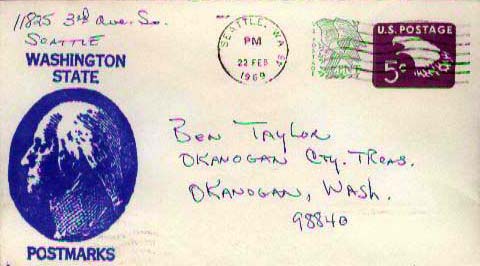 11825 3rd Ave. So.
SEATTLE
WASHINGTON
STATE
POSTMARKS
SEATTLE, WA
PM
22 FEB
1969
U.S. POSTAGE
5¢
Ben Taylor
OKANOGAN Cty. Treas.
OKANOGAN, Wash.
98840